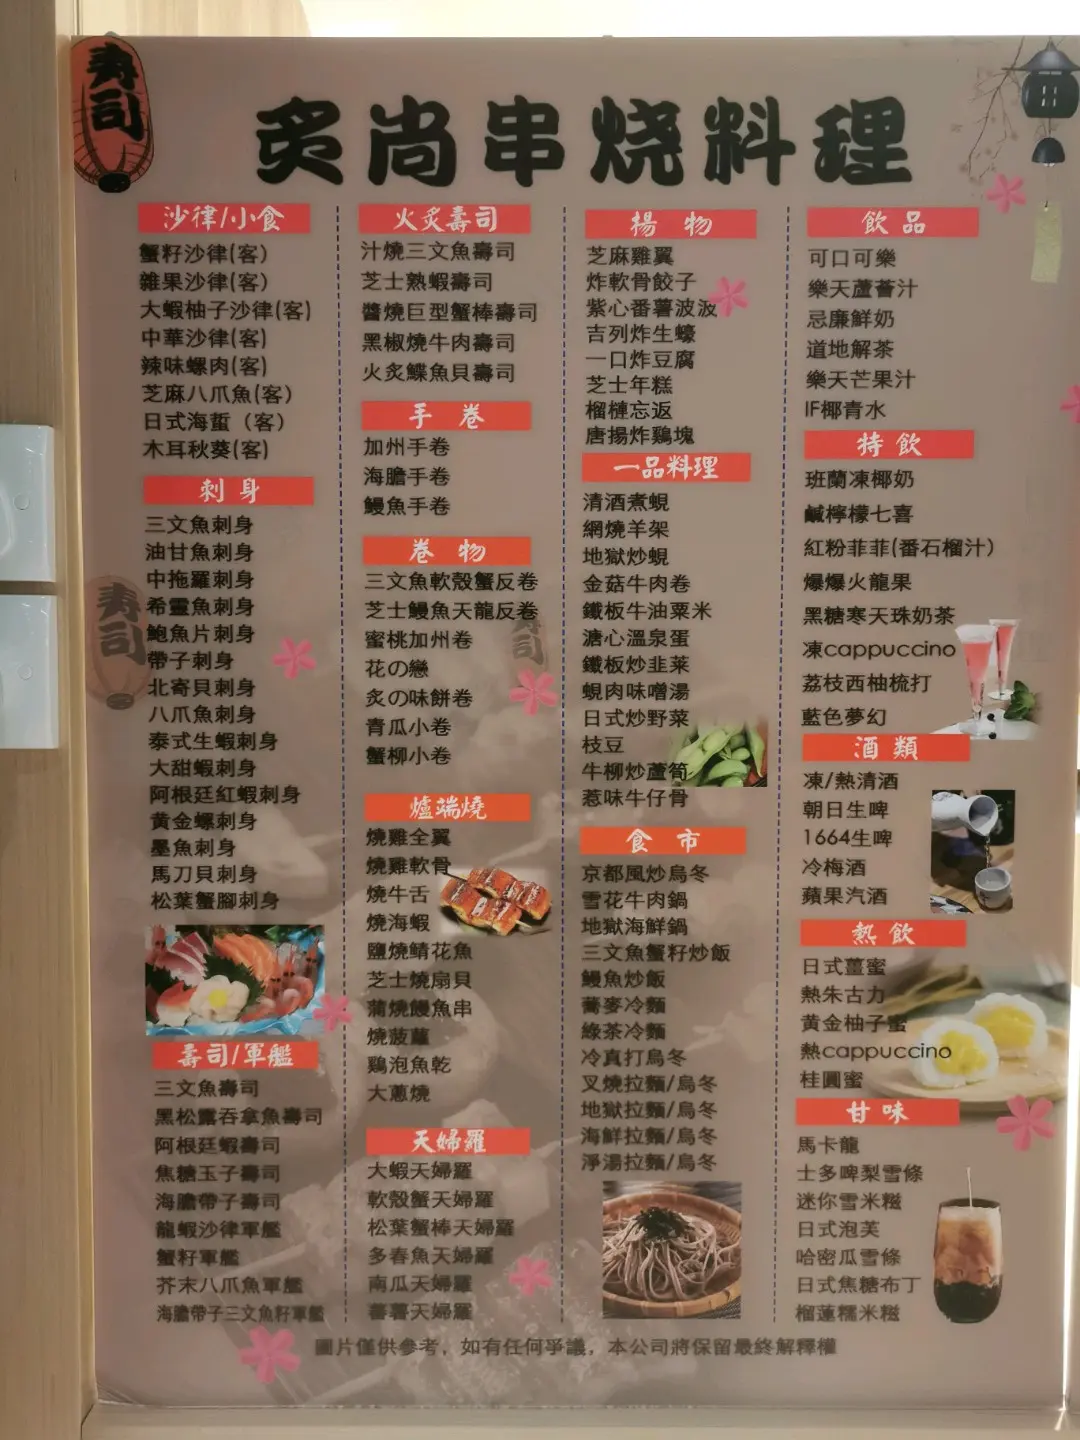 寿司
炙尚串烧料理
沙律/小食
蟹籽沙律(客)
雜果沙律(客)
大蝦柚子沙律(客)
中華沙律(客)
辣味螺肉(客)
芝麻八爪魚(客)
日式海蜇（客）
木耳秋葵(客)
刺身
三文魚刺身
油甘魚刺身
中拖羅刺身
希靈魚刺身
鮑魚片刺身
帶子刺身
北寄貝刺身
八爪魚刺身
泰式生蝦刺身
大甜蝦刺身
阿根廷紅蝦刺身
黃金螺刺身
墨魚刺身
馬刀貝刺身
松葉蟹腳刺身
寿司
壽司/軍艦
三文魚壽司
黑松露吞拿魚壽司
阿根廷蝦壽司
焦糖玉子壽司
海膽帶子壽司
龍蝦沙律軍艦
蟹籽軍艦
芥末八爪魚軍艦
海膽帶子三文魚籽軍艦
火炙壽司
汁燒三文魚壽司
芝士熟蝦壽司
醬燒巨型蟹棒壽司
黑椒燒牛肉壽司
火炙鰈魚貝壽司
手卷
加州手卷
海膽手卷
鰻魚手卷
卷物
三文魚軟殼蟹反卷
芝士鰻魚天龍反卷
蜜桃加州卷
花の戀
炙の味餅卷
青瓜小卷
蟹柳小卷
寿司
爐端燒
燒雞全翼
燒雞軟骨
燒牛舌
燒海蝦
鹽燒鯖花魚
芝士燒扇貝
蒲燒饅魚串
燒菠蘿
鷄泡魚乾
大蔥燒
天婦羅
大蝦天婦羅
軟殼蟹天婦羅
松葉蟹棒天婦羅
多春魚天婦羅
南瓜天婦羅
蕃薯天婦羅
揚物
芝麻雞翼
炸軟骨餃子
紫心番薯波波
吉列炸生蠔
一口炸豆腐
芝士年糕
榴槤忘返
唐揚炸鷄塊
一品料理
清酒煮蜆
網燒羊架
地獄炒蜆
金菇牛肉卷
鐵板牛油粟米
溏心溫泉蛋
鐵板炒韭菜
蜆肉味噌湯
日式炒野菜
枝豆
牛柳炒蘆筍
惹味牛仔骨
食市
京都風炒烏冬
雪花牛肉鍋
地獄海鮮鍋
三文魚蟹籽炒飯
鰻魚炒飯
蕎麥冷麵
綠茶冷麵
冷真打烏冬
叉燒拉麵/烏冬
地獄拉麵/烏冬
海鮮拉麵/烏冬
淨湯拉麵/烏冬
飲品
可口可樂
樂天蘆薈汁
忌廉鮮奶
道地解茶
樂天芒果汁
IF椰青水
特飲
班蘭凍椰奶
鹹檸檬七喜
紅粉菲菲(番石榴汁)
爆爆火龍果
黑糖寒天珠奶茶
凍cappuccino
荔枝西柚梳打
藍色夢幻
酒類
凍/熱清酒
朝日生啤
1664生啤
冷梅酒
蘋果汽酒
熱飲
日式薑蜜
熱朱古力
黃金柚子蜜
熱cappuccino
桂圓蜜
甘味
馬卡龍
士多啤梨雪條
迷你雪米糍
日式泡芙
哈密瓜雪條
日式焦糖布丁
榴蓮糯米糍
圖片僅供參考，如有任何爭議，本公司將保留最終解釋權